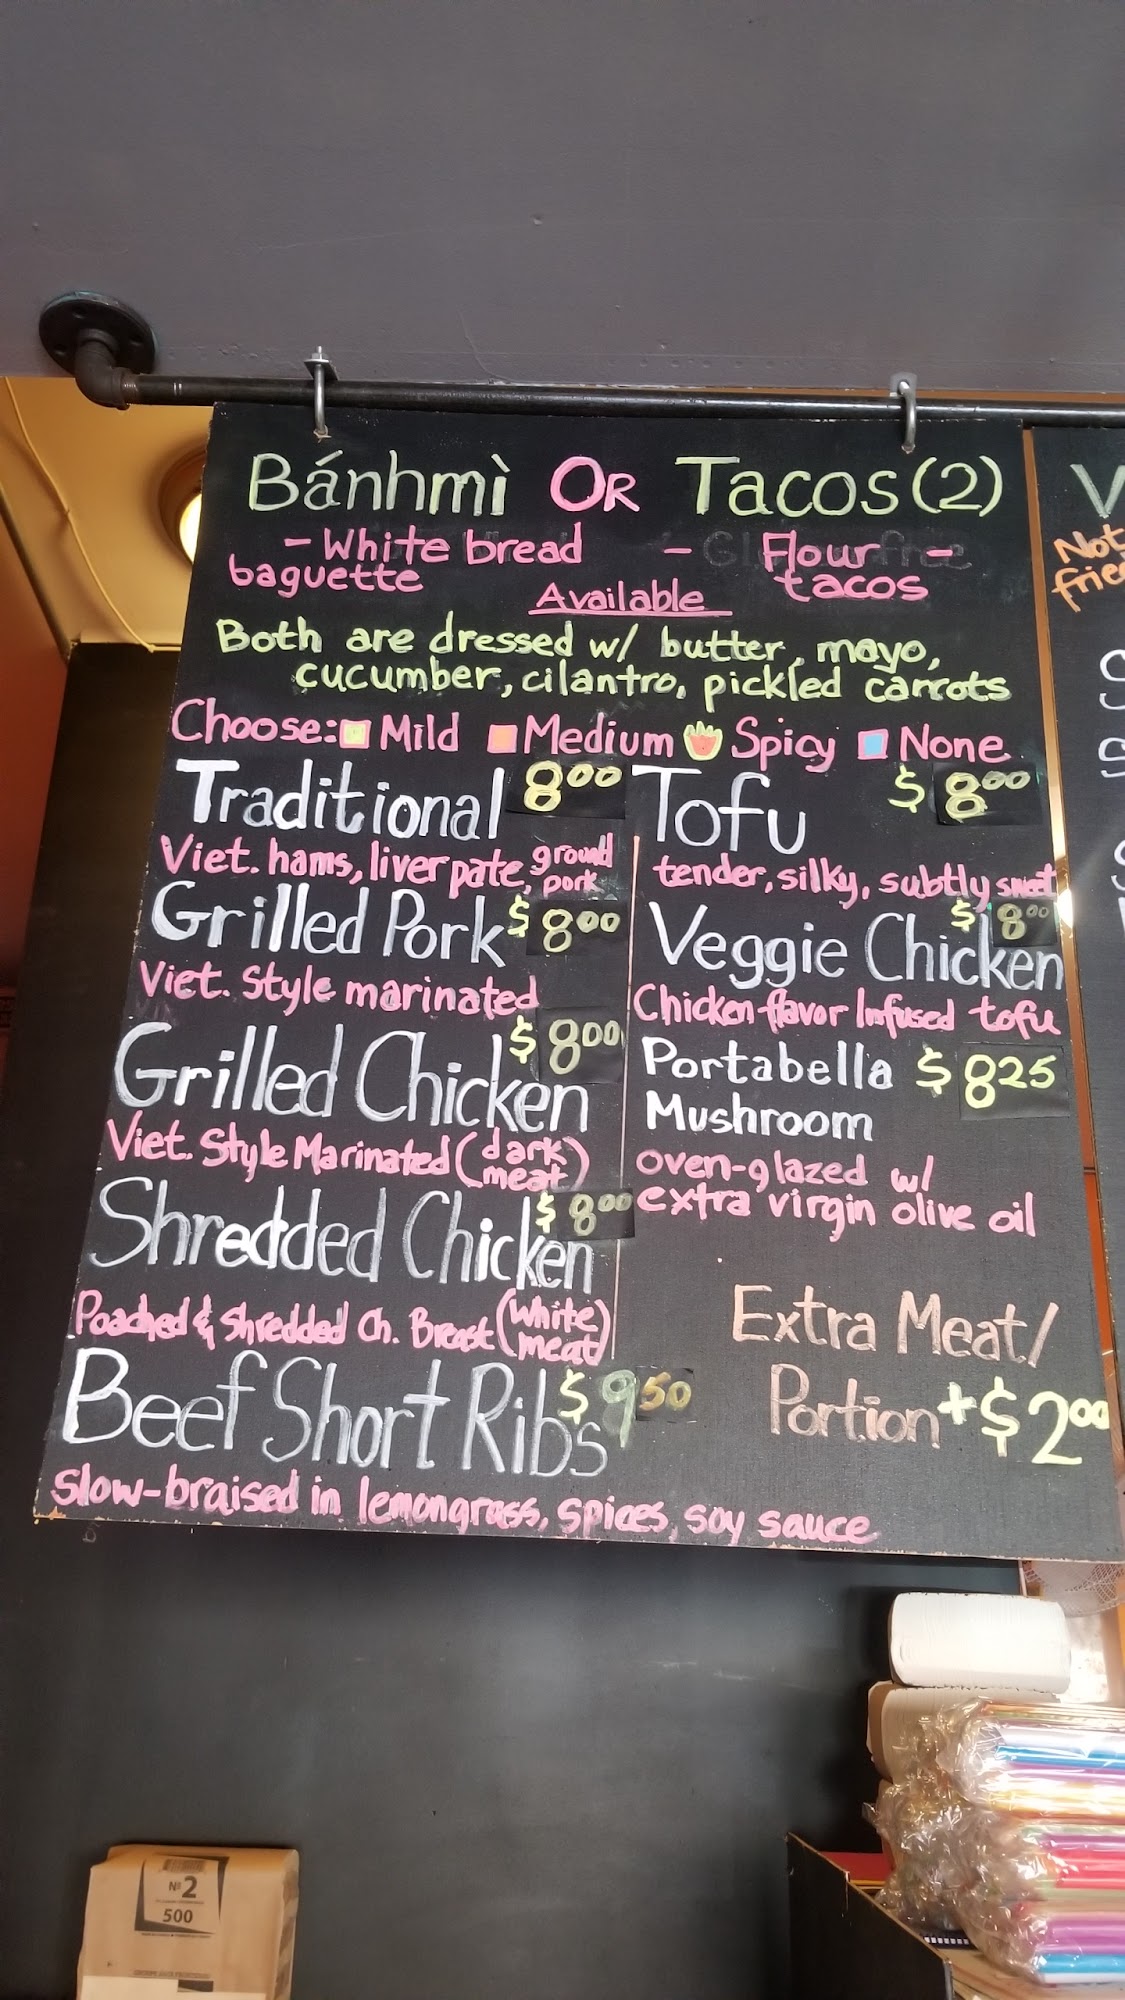 Bánhmì OR Tacos(2)
- White bread baguette
- Flour - tacos
Available
Both are dressed w/ butter, mayo,
cucumber, cilantro, pickled carrots
Choose: Mild Medium Spicy None
Traditional 8.00
Viet. hams, liver pate, ground pork
Grilled Pork $8.00
Viet. Style marinated
Grilled Chicken $8.00
Viet. Style Marinated (dark meat)
Shredded Chicken $8.00
Poached & Shredded Ch. Breast (white meat)
Beef Short Ribs $9.50
slow-braised in lemongrass, spices, soy sauce
Tofu $8.00
tender, silky, subtly sweet
Veggie Chicken $8.00
Chicken flavor Infused tofu
Portabella $8.25
Mushroom
oven-glazed w/
extra virgin olive oil
Extra Meat/
Portion +$2.00
Not
No 2
500